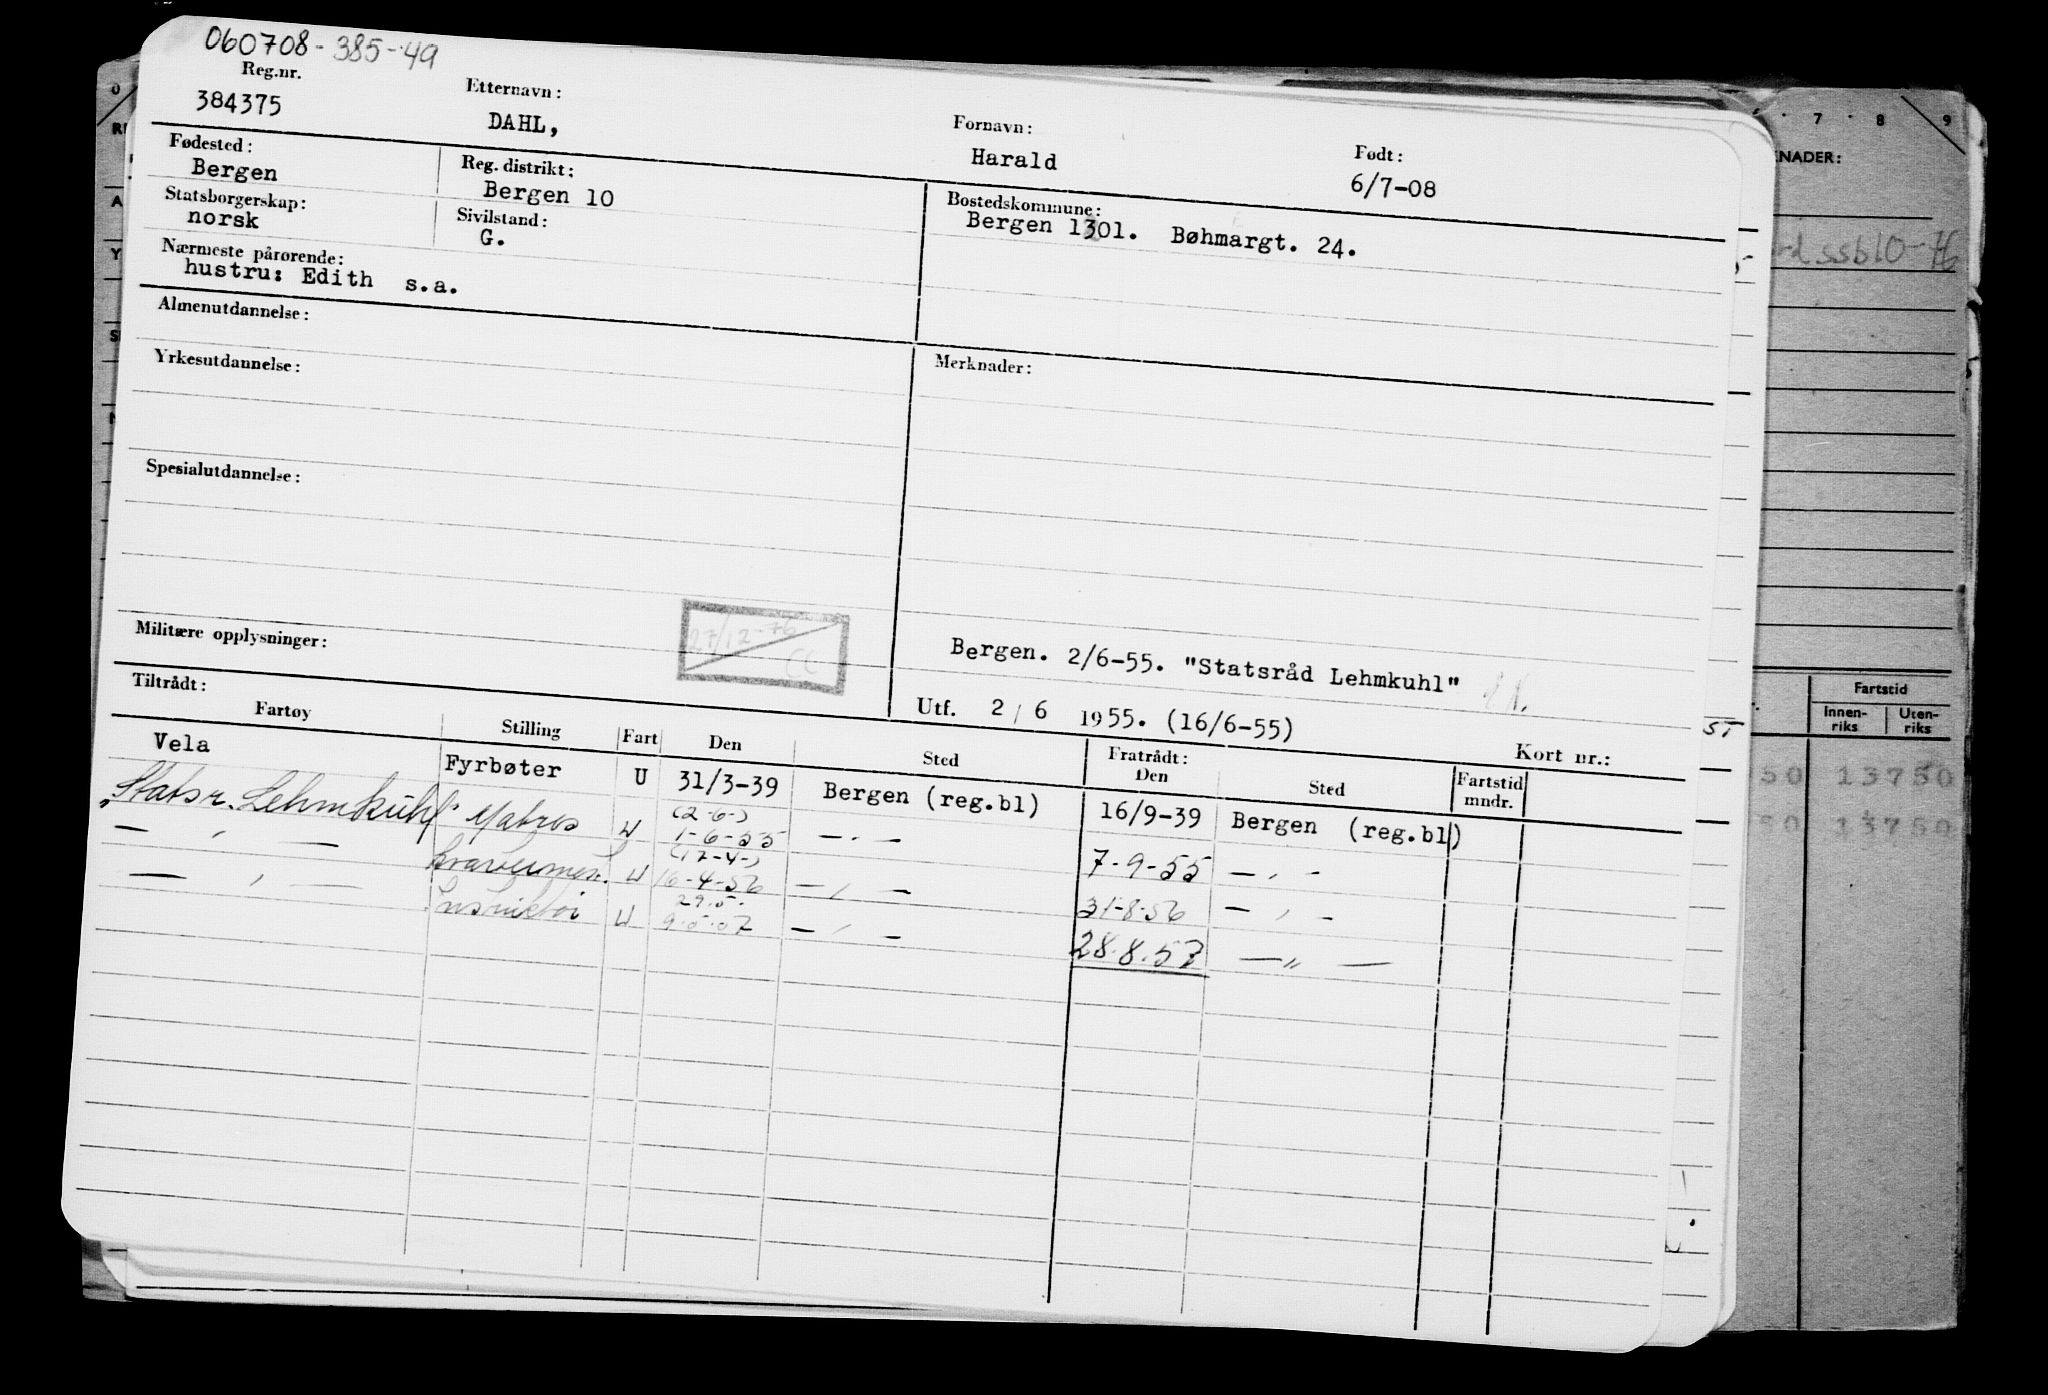 060708-385-49
Reg.nr.
384375
Etternavn:
DAHL,
Fornavn:
Harald
Født:
6/7-08
Fødested:
Bergen
Reg. distrikt:
Bergen 10
Bostedskommune:
Bergen 1301. Bøhmargt. 24.
Statsborgerskap:
norsk
Sivilstand:
G.
Nærmeste pårørende:
hustru: Edith s.a.
Almenutdannelse:
Yrkesutdannelse:
Merknader:
Spesialutdannelse:
Militære opplysninger:
27/12-76
CC
Bergen. 2/6-55. "Statsråd Lehmkuhl"
Utf. 2/6 1955. (16/6-55)
Kort nr.:
Tiltrådt:
Fartøy Stilling Fart Den Sted Fratrådt: Den Sted Fartstid mndr.
Vela Fyrbøter U 31/3-39 Bergen (reg.bl) 16/9-39 Bergen (reg.bl)
(2-6-)
"Statsr. Lehmkuhl" Matros U 1-6-55 — " — 7-9-55 — " —
(17-4-)
— " — U 16-4-56 — " — 31-8-56 — " —
29.5.
— " — U — " — 28.8.57 — " —
7 8 9
KNADER:
ssb10-76
Fartstid
Innen-
riks
Uten-
riks
50 13750
50 13750